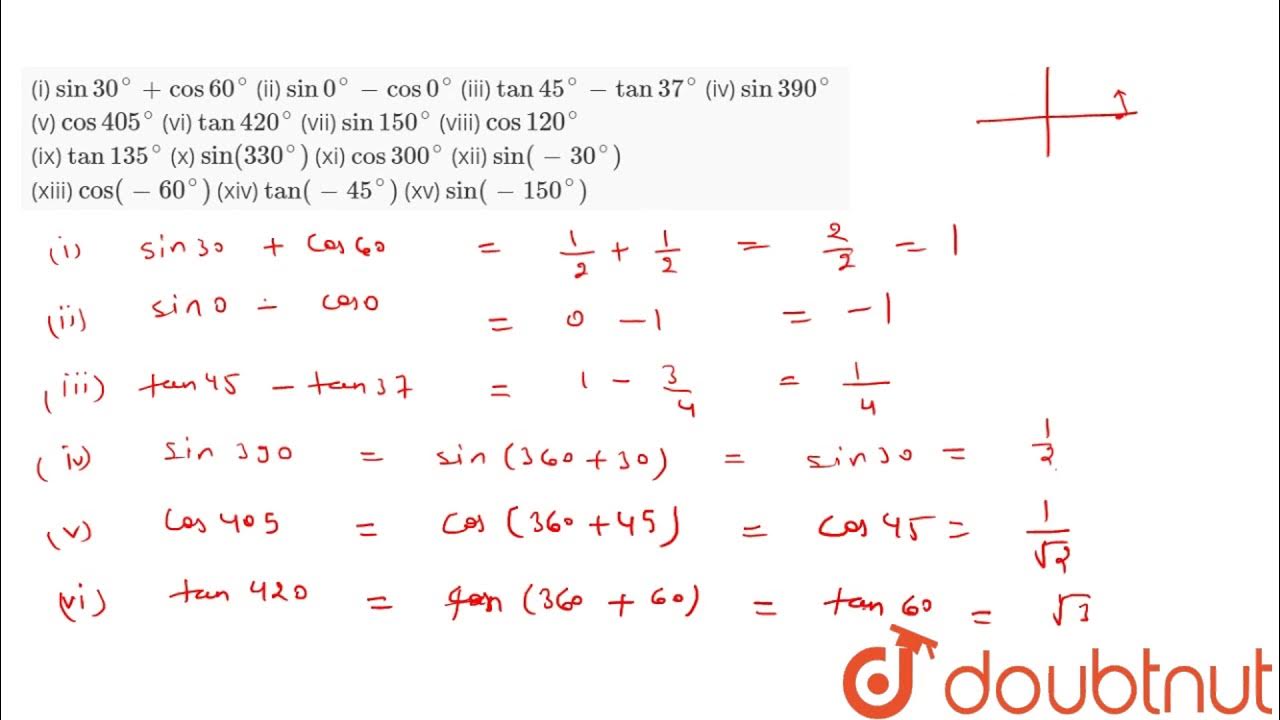 (i) sin 30° + cos 60° (ii) sin 0° − cos 0° (iii) tan 45° − tan 37° (iv) sin 390°
(v) cos 405° (vi) tan 420° (vii) sin 150° (viii) cos 120°
(ix) tan 135° (x) sin(330°) (xi) cos 300° (xii) sin( − 30°)
(xiii) cos( − 60°) (xiv) tan( − 45°) (xv) sin( − 150°)
(i) sin 30 + cos 60 = 1/2 + 1/2 = 2/2 = 1
(ii) sin 0 − cos 0 = 0 − 1 = −1
(iii) tan 45 − tan 37 = 1 − 3/4 = 1/4
(iv) sin 390 = sin (360 + 30) = sin 30 = 1/2
(v) cos 405 = cos (360 + 45) = cos 45 = 1/√2
(vi) tan 420 = tan (360 + 60) = tan 60 = √3
doubtnut